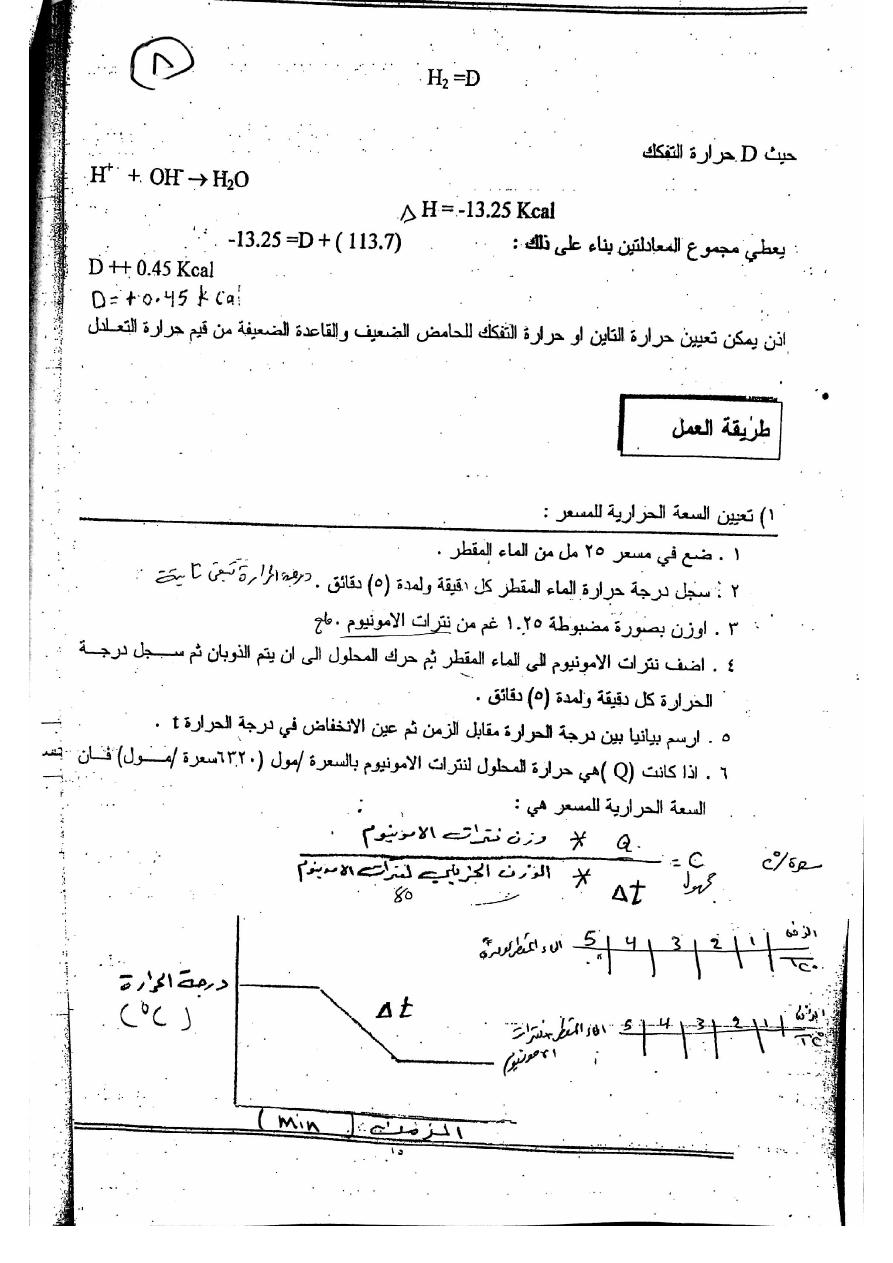 ٨
H₂ =D
حيث D حرارة التفكك
H⁺ + OH⁻ → H₂O
△ H = -13.25 Kcal
يعطي مجموع المعادلتين بناء على ذلك : -13.25 =D + ( 113.7)
D ++ 0.45 Kcal
D= +0.45 k Cal
اذن يمكن تعيين حرارة التاين او حرارة التفكك للحامض الضعيف والقاعدة الضعيفة من قيم حرارة التعادل
طريقة العمل
١) تعيين السعة الحرارية للمسعر :
١ . ضع في مسعر ٢٥ مل من الماء المقطر .
٢ . سجل درجة حرارة الماء المقطر كل دقيقة ولمدة (٥) دقائق . درجة الحرارة تبقى ثابتة
٣ . اوزن بصورة مضبوطة ١.٢٥ غم من نترات الامونيوم .
٤ . اضف نترات الامونيوم الى الماء المقطر ثم حرك المحلول الى ان يتم الذوبان ثم سجل درجة
الحرارة كل دقيقة ولمدة (٥) دقائق .
٥ . ارسم بيانيا بين درجة الحرارة مقابل الزمن ثم عين الانخفاض في درجة الحرارة t .
٦ . اذا كانت (Q ) هي حرارة المحلول لنترات الامونيوم بالسعرة /مول (٦٣٢٠سعرة /مول) فان
السعة الحرارية للمسعر هي :
Q * وزن نترات الامونيوم
سعرة/°م C =
مجهول
Δt * الوزن الجزيئي لنترات الامونيوم
80
الزمن 1 2 3 4 5 الماء المقطر لوحده
T C°
الزمن 1 2 3 4 5 الماء المقطر + نترات الامونيوم
T C°
درجة الحرارة
(°C)
Δt
الزمن (min)
١٥